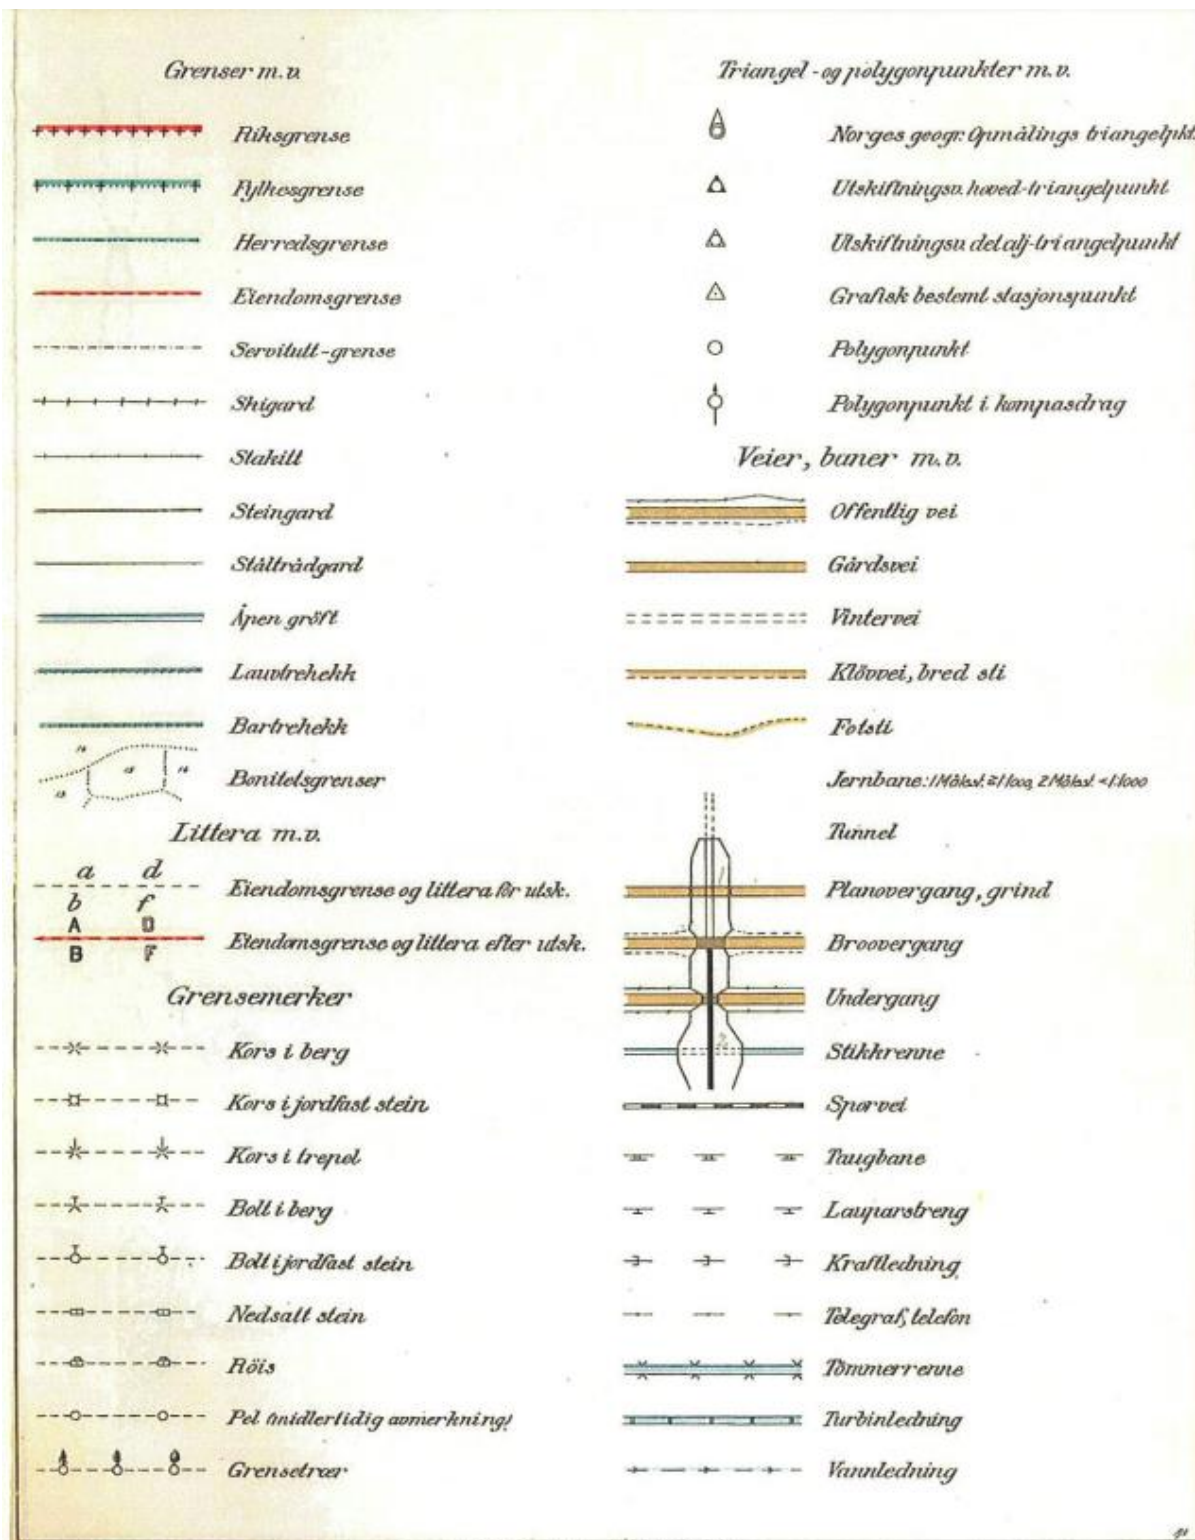 Grenser m.v.
Riksgrense
Fylkesgrense
Herredsgrense
Eiendomsgrense
Servitutt-grense
Skigard
Stakitt
Steingard
Ståltrådgard
Åpen gröft
Lauvtrehekk
Bartrehekk
14
15
14
13
Bonitetsgrenser
Littera m.v.
a d
Eiendomsgrense og littera för utsk.
b f
A D
Eiendomsgrense og littera efter utsk.
B F
Grensemerker
Kors i berg
Kors i jordfast stein
Kors i trepel
Bolt i berg
Bolt i jordfast stein
Nedsatt stein
Röis
Pel (midlertidig avmerkning)
Grensetrær
Triangel- og polygonpunkter m.v.
Norges geogr. Opmålings triangelpkt.
Utskiftningsv. hoved-triangelpunkt
Utskiftningsv. detalj-triangelpunkt
Grafisk bestemt stasjonspunkt
Polygonpunkt
Polygonpunkt i kompasdrag
Veier, baner m.v.
Offentlig vei
Gårdsvei
Vintervei
Klövvei, bred sti
Fotsti
Jernbane: 1 Målest. ≥ 1:1000, 2 Målest. < 1:1000
Tunnel
1
Planovergang, grind
Broovergang
Undergang
2
Stikkrenne
Sporvei
Taugbane
Lauparstreng
Kraftledning
Telegraf, telefon
Tömmerrenne
Turbinledning
Vannledning